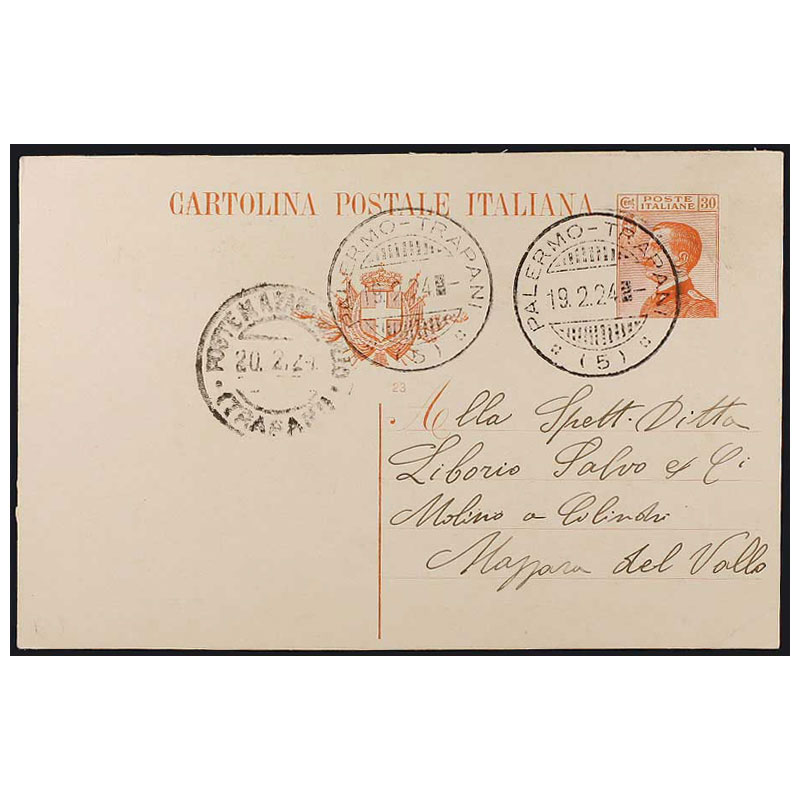 CARTOLINA POSTALE ITALIANA
Cent POSTE ITALIANE 30
PALERMO-TRAPANI
19.2.24
(5)
PALERMO-TRAPANI
19.2.24
(5)
POSTE MAZARA DEL
20.2.24
(TRAPANI)
23
Alla Spett. Ditta
Liborio Salvo & Ci
Molino a Cilindri
Mazzara del Vallo